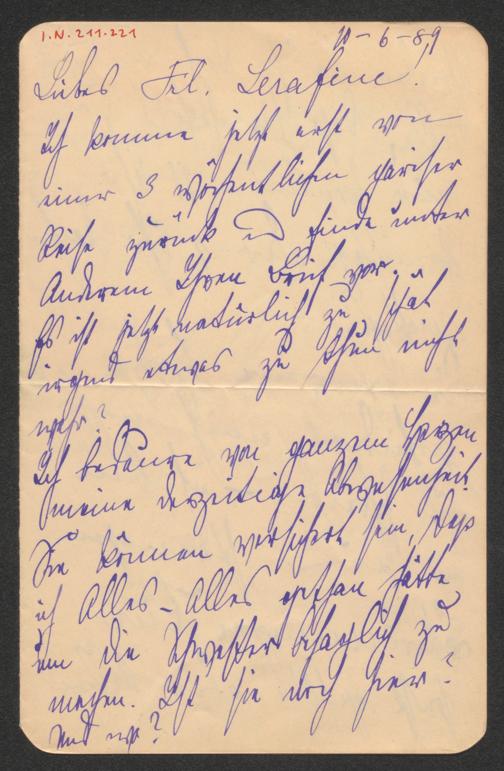 I.N. 211.221
10-6-89
Liebes Frl. Serafine!
Ich komme jetzt erst von
einer 3 wöchentlichen pariser
Reise zurück und finde unter
Anderem Ihren Brief vor.
Es ist jetzt natürlich zu spät
irgend etwas zu thun nicht
wahr?
Ich bedaure von ganzem Herzen
meine derzeitige Abwesenheit
Sie können versichert sein, dass
ich Alles - Alles gethan hätte
um die Schwester behaglich zu
machen. Ist sie noch hier?
und wo?